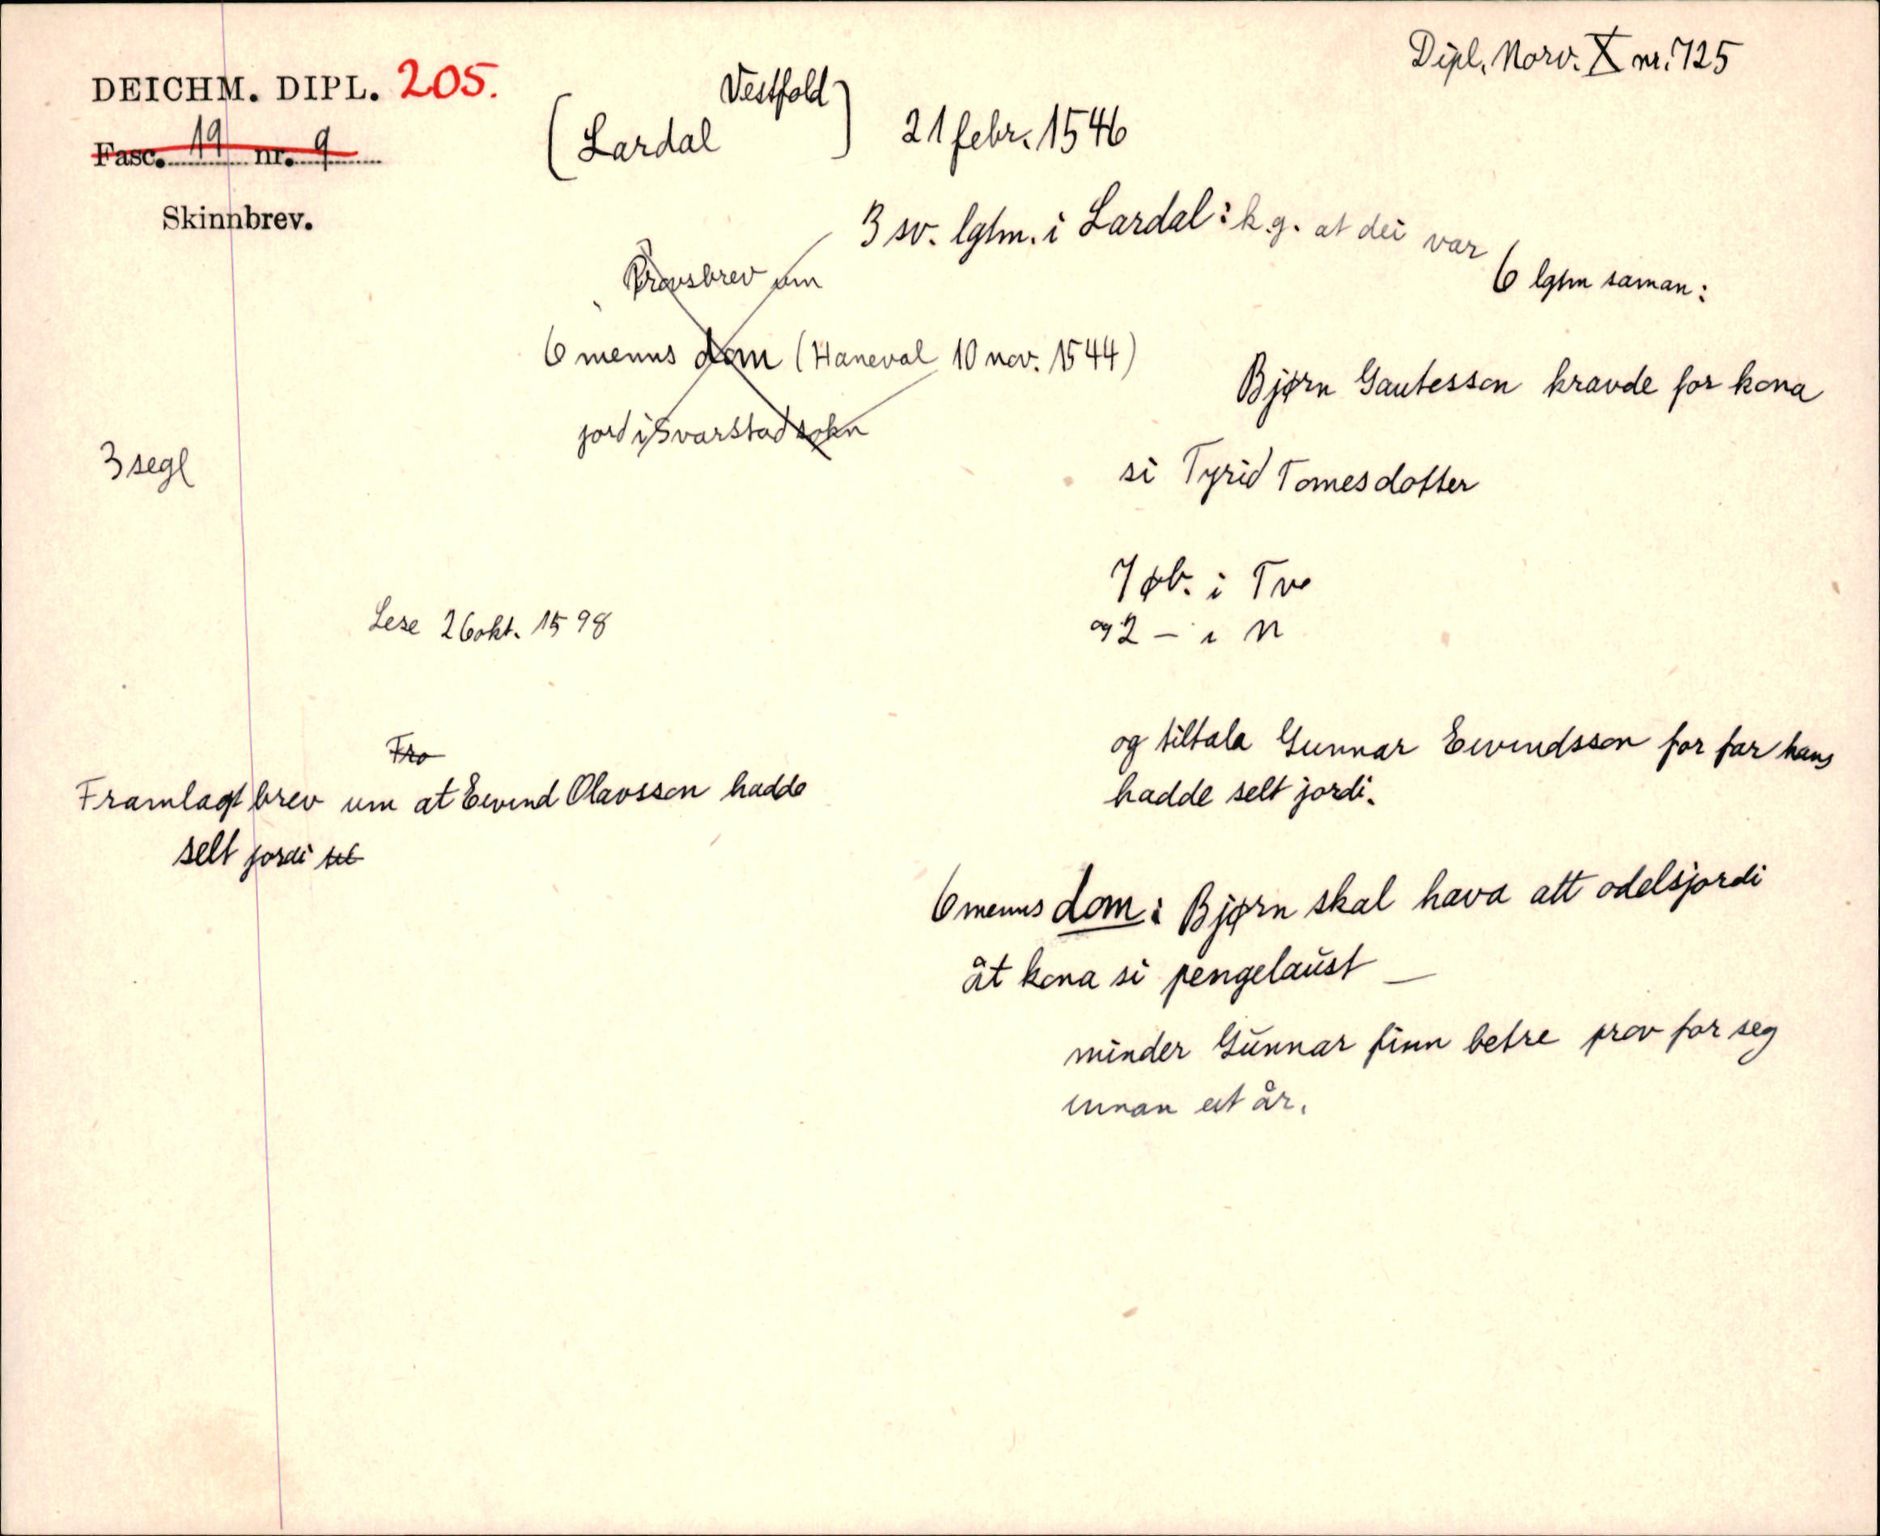 Dipl. Norv. X nr. 725
DEICHM. DIPL. 205.
Fasc. 19 nr. 9
Skinnbrev.
(Lardal Vestfold) 21 febr. 1546
3 sv. lgtm. i Lardal: k.g. at dei var
6 lgtm saman:
Provsbrev um
6 menns dom (Haneval 10 nov. 1544)
jord i Svarstad sokn
Bjørn Gautesson kravde for kona
si Tyrid Tomesdotter
3 segl
7 øb. i Tve
og 2 — i N
Lese 26 okt. 1598
og tiltala Gunnar Eivindsson for far hans
hadde selt jordi.
Fro
Framlagt brev um at Eivind Olavsson hadde
selt jordi til
6 menns dom: Bjørn skal hava att odelsjordi
åt kona si pengelaust —
minder Gunnar finn betre prov for seg
innan eit år.